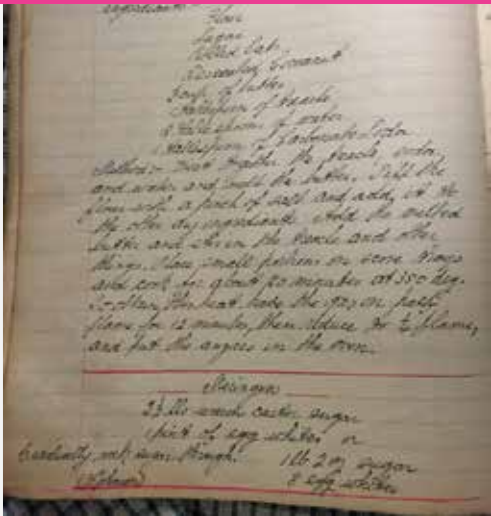 Ingredients
Flour
Sugar
Rolled Oats
Desiccated Coconut
of butter
Tablespoon of treacle
Tablespoons of water
of Carbonate Soda
Method:- Heat together the treacle, soda,
and water and melt the butter. Sift the
flour with a pinch of salt and add it to
the other dry ingredients. Add the melted
butter and stir in the treacle and other
things. Place small portions on scone trays
and cook for about 20 minutes at 350 deg.
the heat have the gas on full
flame for 12 minutes, then reduce to ½ flame,
and put the in the oven.
Meringue
2½ lbs caster sugar
1 pint of egg whites or
1 lb 2 oz sugar
8 egg whites